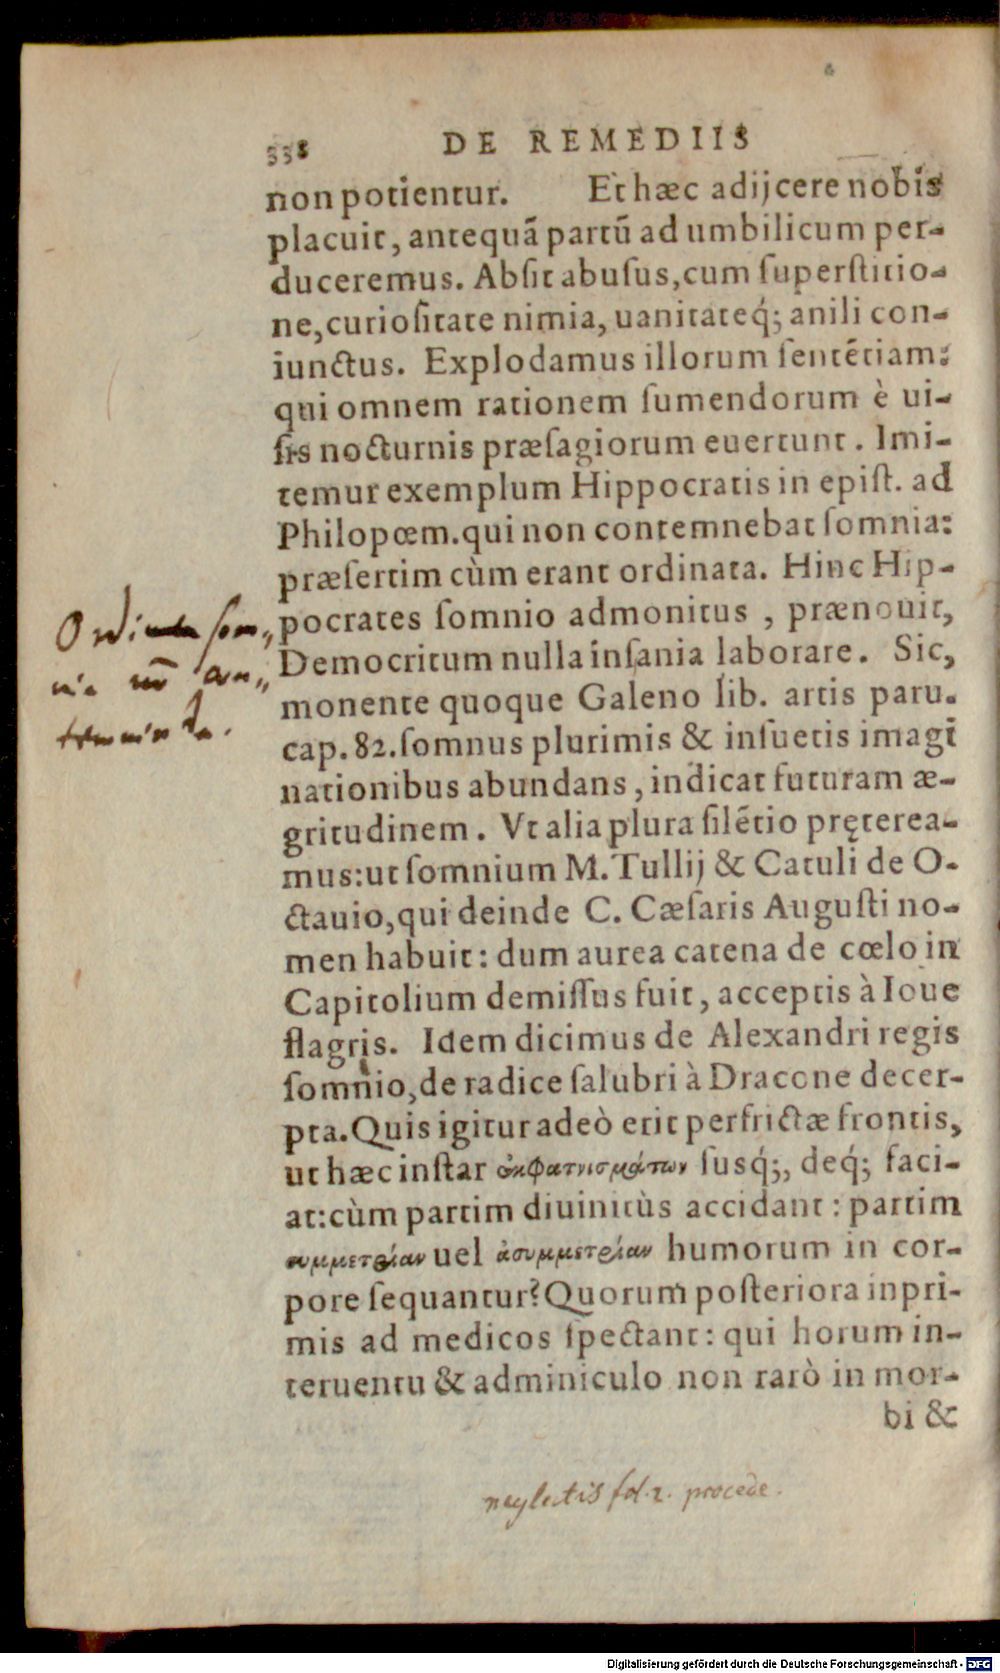 338 DE REMEDIIS
non potientur. Et hæc adijcere nobis
placuit, antequã partũ ad umbilicum per-
duceremus. Abſit abuſus, cum ſuperſtitio-
ne, curioſitate nimia, uanitateq́; anili con-
iunctus. Explodamus illorum ſentẽtiam:
qui omnem rationem ſumendorum è ui-
ſis nocturnis præſagiorum euertunt. Imi-
temur exemplum Hippocratis in epiſt. ad
Philopœm. qui non contemnebat ſomnia:
præſertim cùm erant ordinata. Hinc Hip-
pocrates ſomnio admonitus, prænouit,
Democritum nulla inſania laborare. Sic,
monente quoque Galeno lib. artis paru.
cap. 82. ſomnus plurimis & inſuetis imagi
nationibus abundans, indicat futuram æ-
gritudinem. Vt alia plura ſilẽtio pręterea-
mus: ut ſomnium M. Tullij & Catuli de O-
ctauio, qui deinde C. Cæſaris Auguſti no-
men habuit: dum aurea catena de cœlo in
Capitolium demiſſus fuit, acceptis à Ioue
flagris. Idem dicimus de Alexandri regis
ſomnio, de radice ſalubri à Dracone decer-
pta. Quis igitur adeò erit perfrictæ frontis,
ut hæc inſtar ἀκφατνισμάτων ſusq́;, deq́; faci-
at: cùm partim diuinitùs accidant: partim
συμμετρίαν uel ἀσυμμετρίαν humorum in cor-
pore ſequantur? Quorum poſteriora inpri-
mis ad medicos ſpectant: qui horum in-
teruentu & adminiculo non rarò in mor-
bi &
Ordinata ſom„
nia nõ con„
temnenda.
neglectis fol. 2. procede.
Digitalisierung gefördert durch die Deutsche Forschungsgemeinschaft - DFG